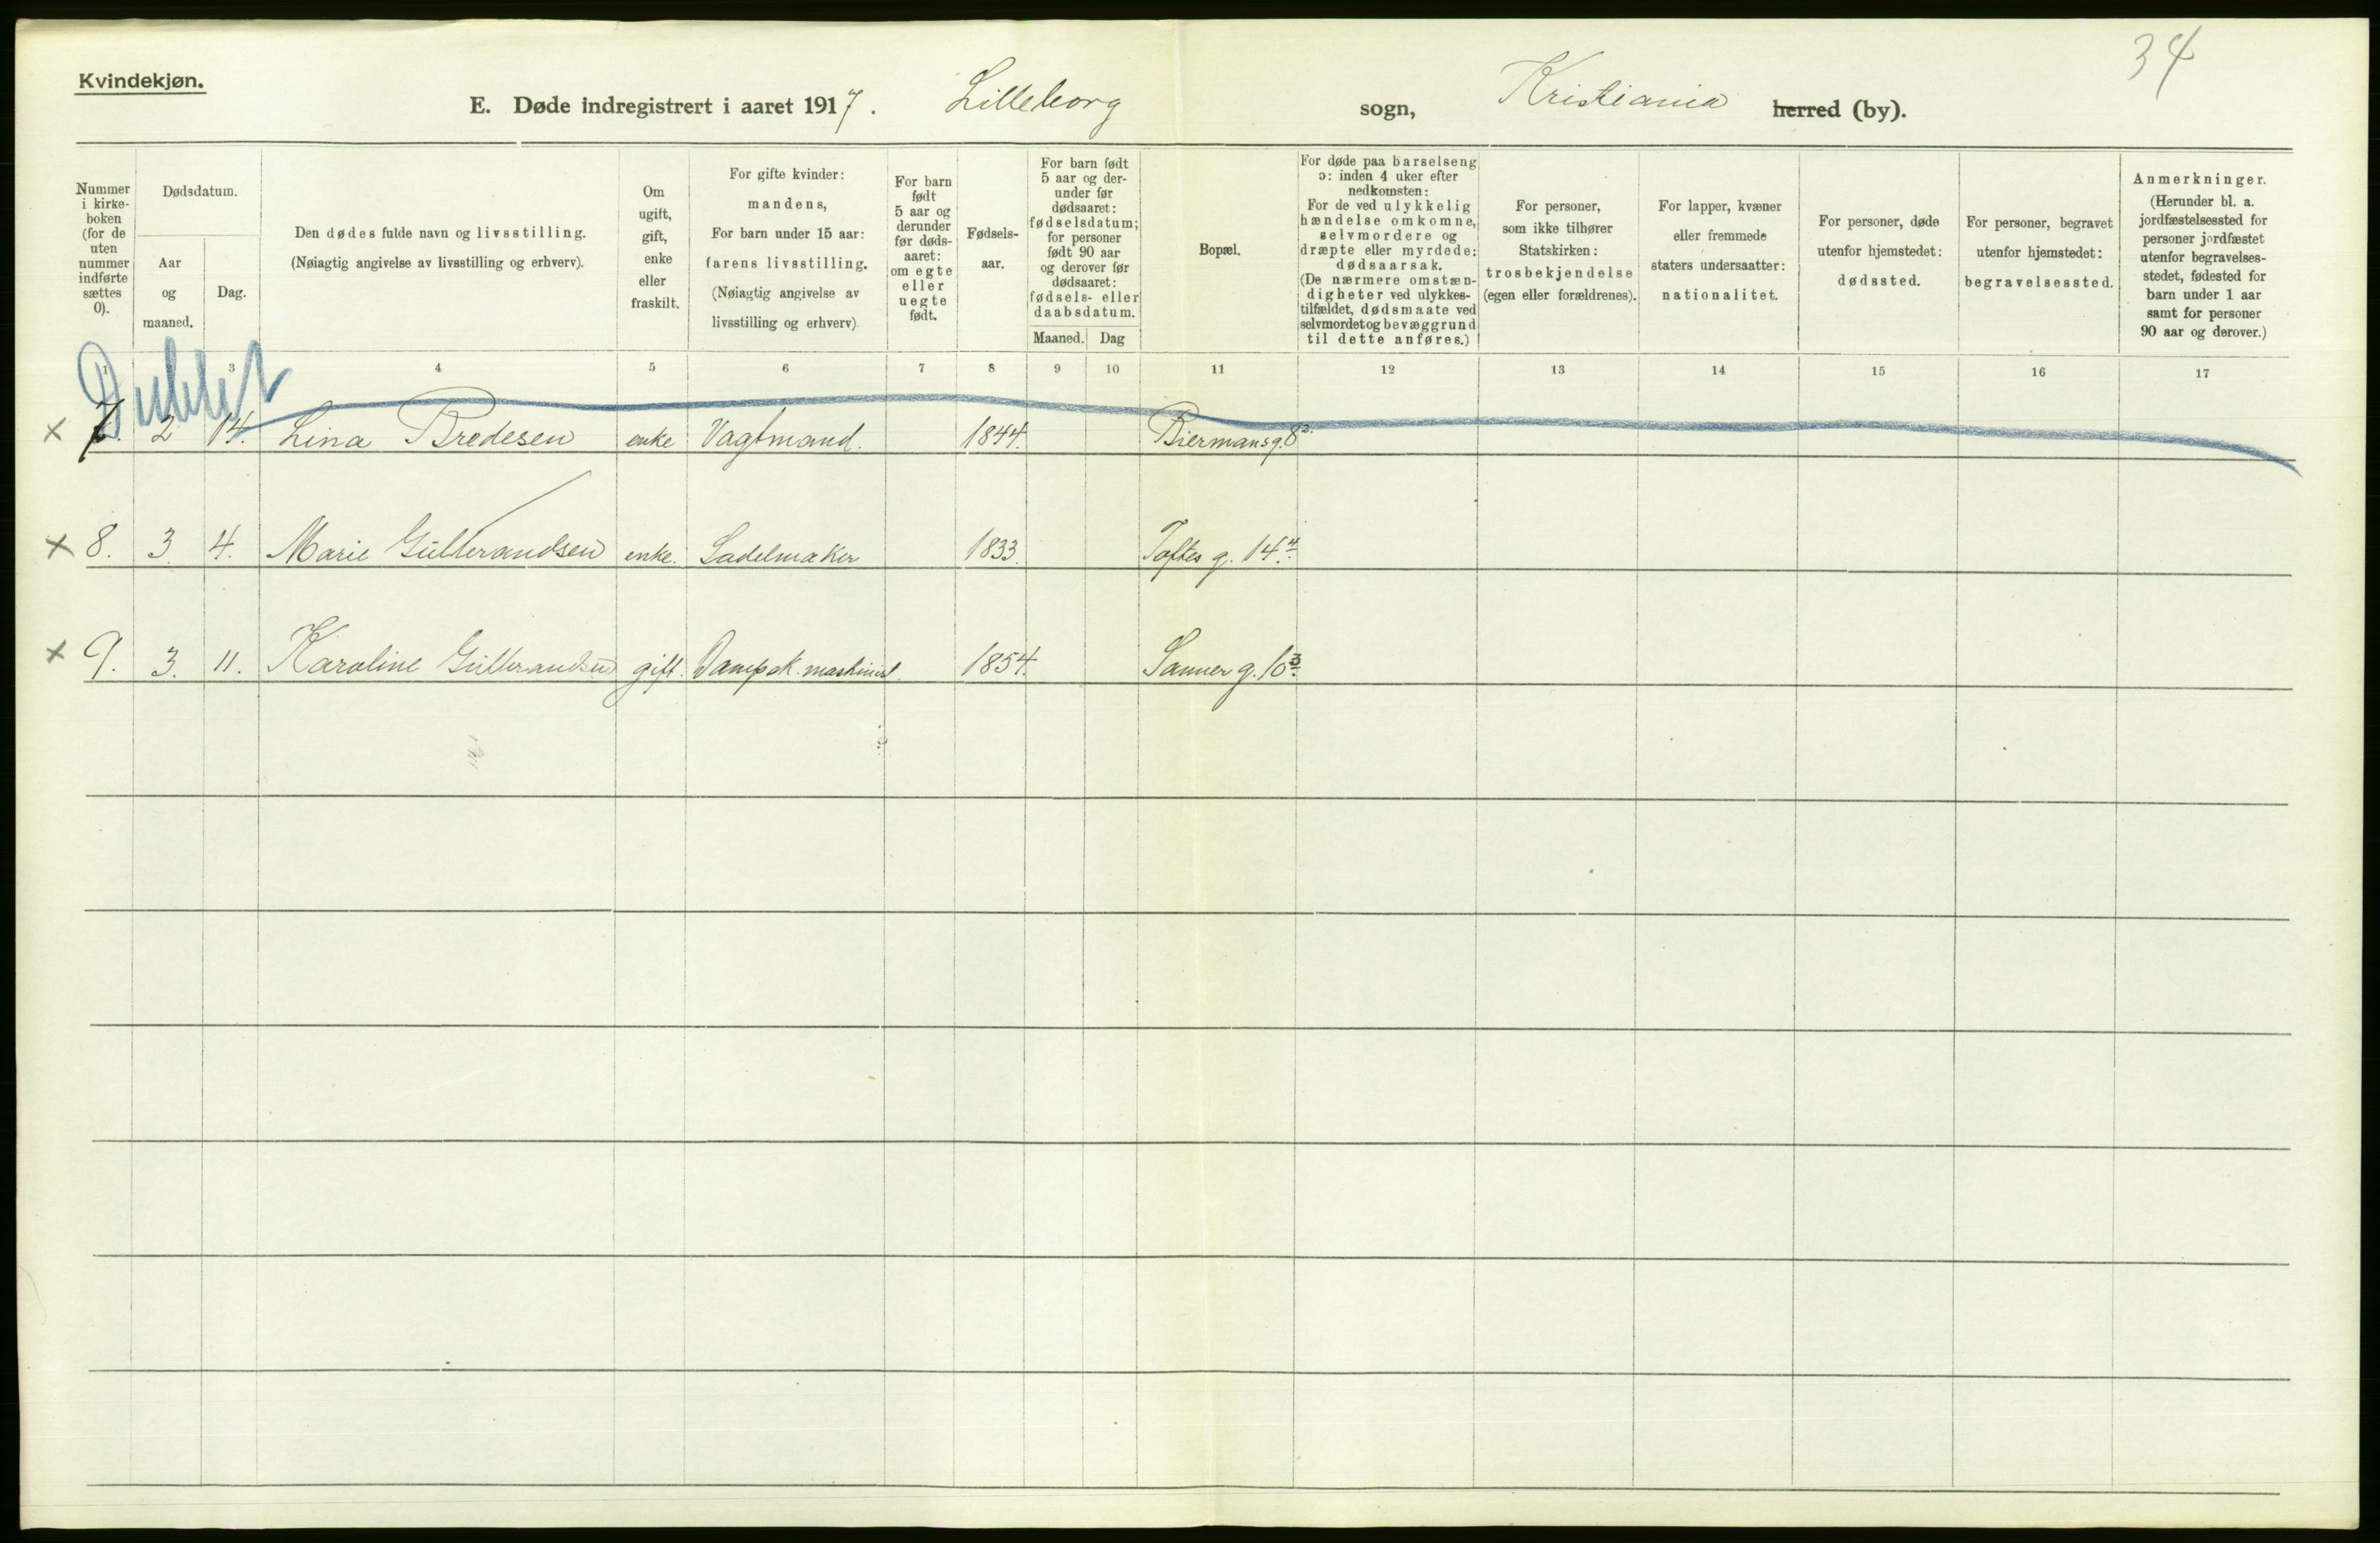 34
Kvindekjøn.
E. Døde indregistrert i aaret 1917. Lilleborg sogn, Kristiania herred (by).
Nummer i kirkeboken (for de uten nummer indførte sættes 0).
Dødsdatum.
Aar og maaned.
Dag.
Den dødes fulde navn og livsstilling.
(Nøiagtig angivelse av livsstilling og erhverv).
Om ugift, gift, enke eller fraskilt.
For gifte kvinder: mandens,
For barn under 15 aar: farens livsstilling.
(Nøiagtig angivelse av livsstilling og erhverv)
For barn født 5 aar og derunder før dødsaaret: om egte eller uegte født.
Fødselsaar.
For barn født 5 aar og derunder før dødsaaret: fødselsdatum; for personer født 90 aar og derover før dødsaaret: fødsels- eller daabsdatum.
Maaned. Dag
Bopæl.
For døde paa barselseng ɔ: inden 4 uker efter nedkomsten:
For de ved ulykkelig hændelse omkomne, selvmordere og dræpte eller myrdede: dødsaarsak.
(De nærmere omstændigheter ved ulykkestilfældet, dødsmaate ved selvmordet og bevæggrund til dette anføres.)
For personer, som ikke tilhører Statskirken: trosbekjendelse (egen eller forældrenes).
For lapper, kvæner eller fremmede staters undersaatter: nationalitet.
For personer, døde utenfor hjemstedet: dødssted.
For personer, begravet utenfor hjemstedet: begravelsessted.
Anmerkninger.
(Herunder bl. a. jordfæstelsessted for personer jordfæstet utenfor begravelsesstedet, fødested for barn under 1 aar samt for personer 90 aar og derover.)
1 3 4 5 6 7 8 9 10 11 12 13 14 15 16 17
Dublet
x 7. 2 14. Lina Bredesen enke Vagtmand. 1844. Biermansg. 8 2.
x 8. 3 4. Marie Gulbrandsen enke. Sadelmaker 1833. Toftes g. 14 4.
x 9. 3. 11. Karoline Gulbrandsen gift. Dampsk. maskinist. 1854. Sanner g. 10 3.